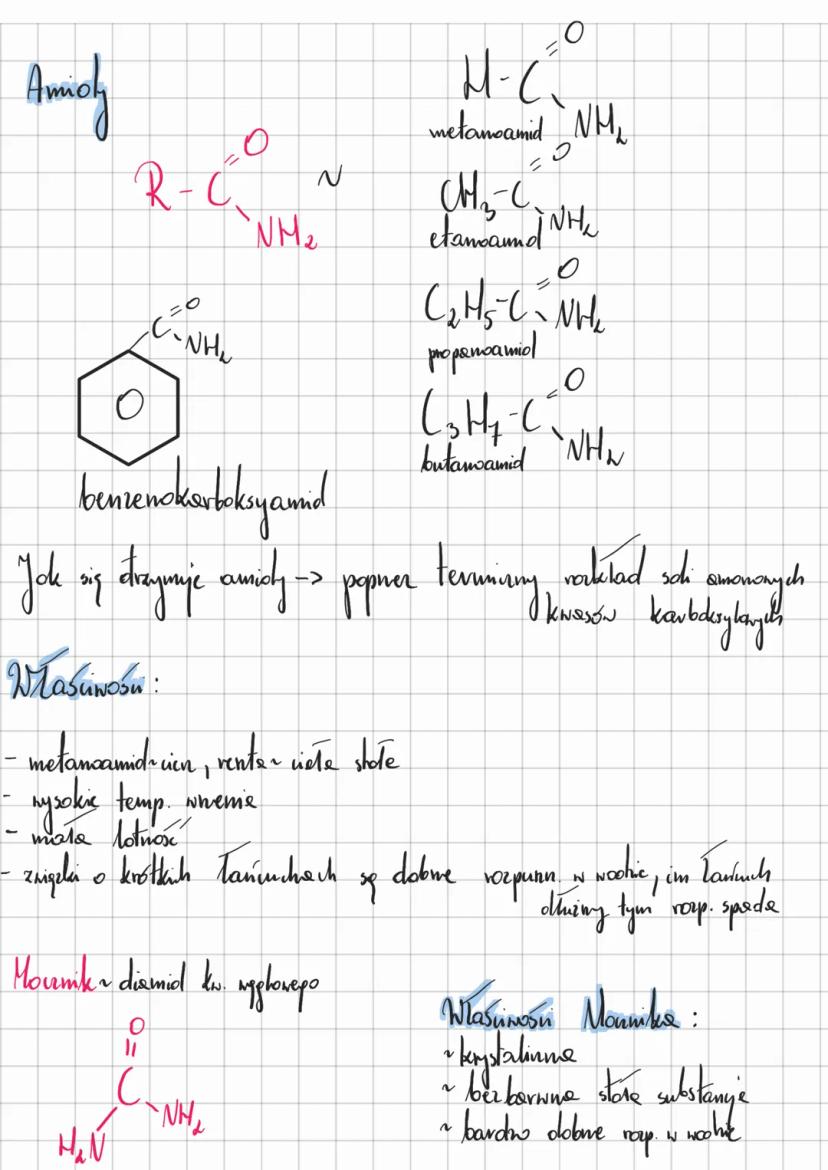 Amidy
R-C=O NH2 ~
H-C=O NH2
metanoamid
CH3-C=O NH2
etanoamid
C2H5-C=O NH2
propanoamid
C3H7-C=O NH2
butanoamid
C=O NH2
benzenokarboksyamid
Jak się otrzymuje amidy -> poprzez termiczny rozkład soli amonowych
kwasów karboksylowych
Właściwości:
- metanoamid~ciecz, reszta~ciała stałe
- wysokie temp. wrzenia
- mała lotność
- związki o krótkich łańcuchach są dobrze rozpuszcz. w wodzie, im łańcuch
dłuższy tym rozp. spada
Mocznik~diamid kw. węglowego
O
=
C
H2N NH2
Właściwości Mocznika:
~ krystaliczna
~ bezbarwna stała substancja
~ bardzo dobrze rozp. w wodzie